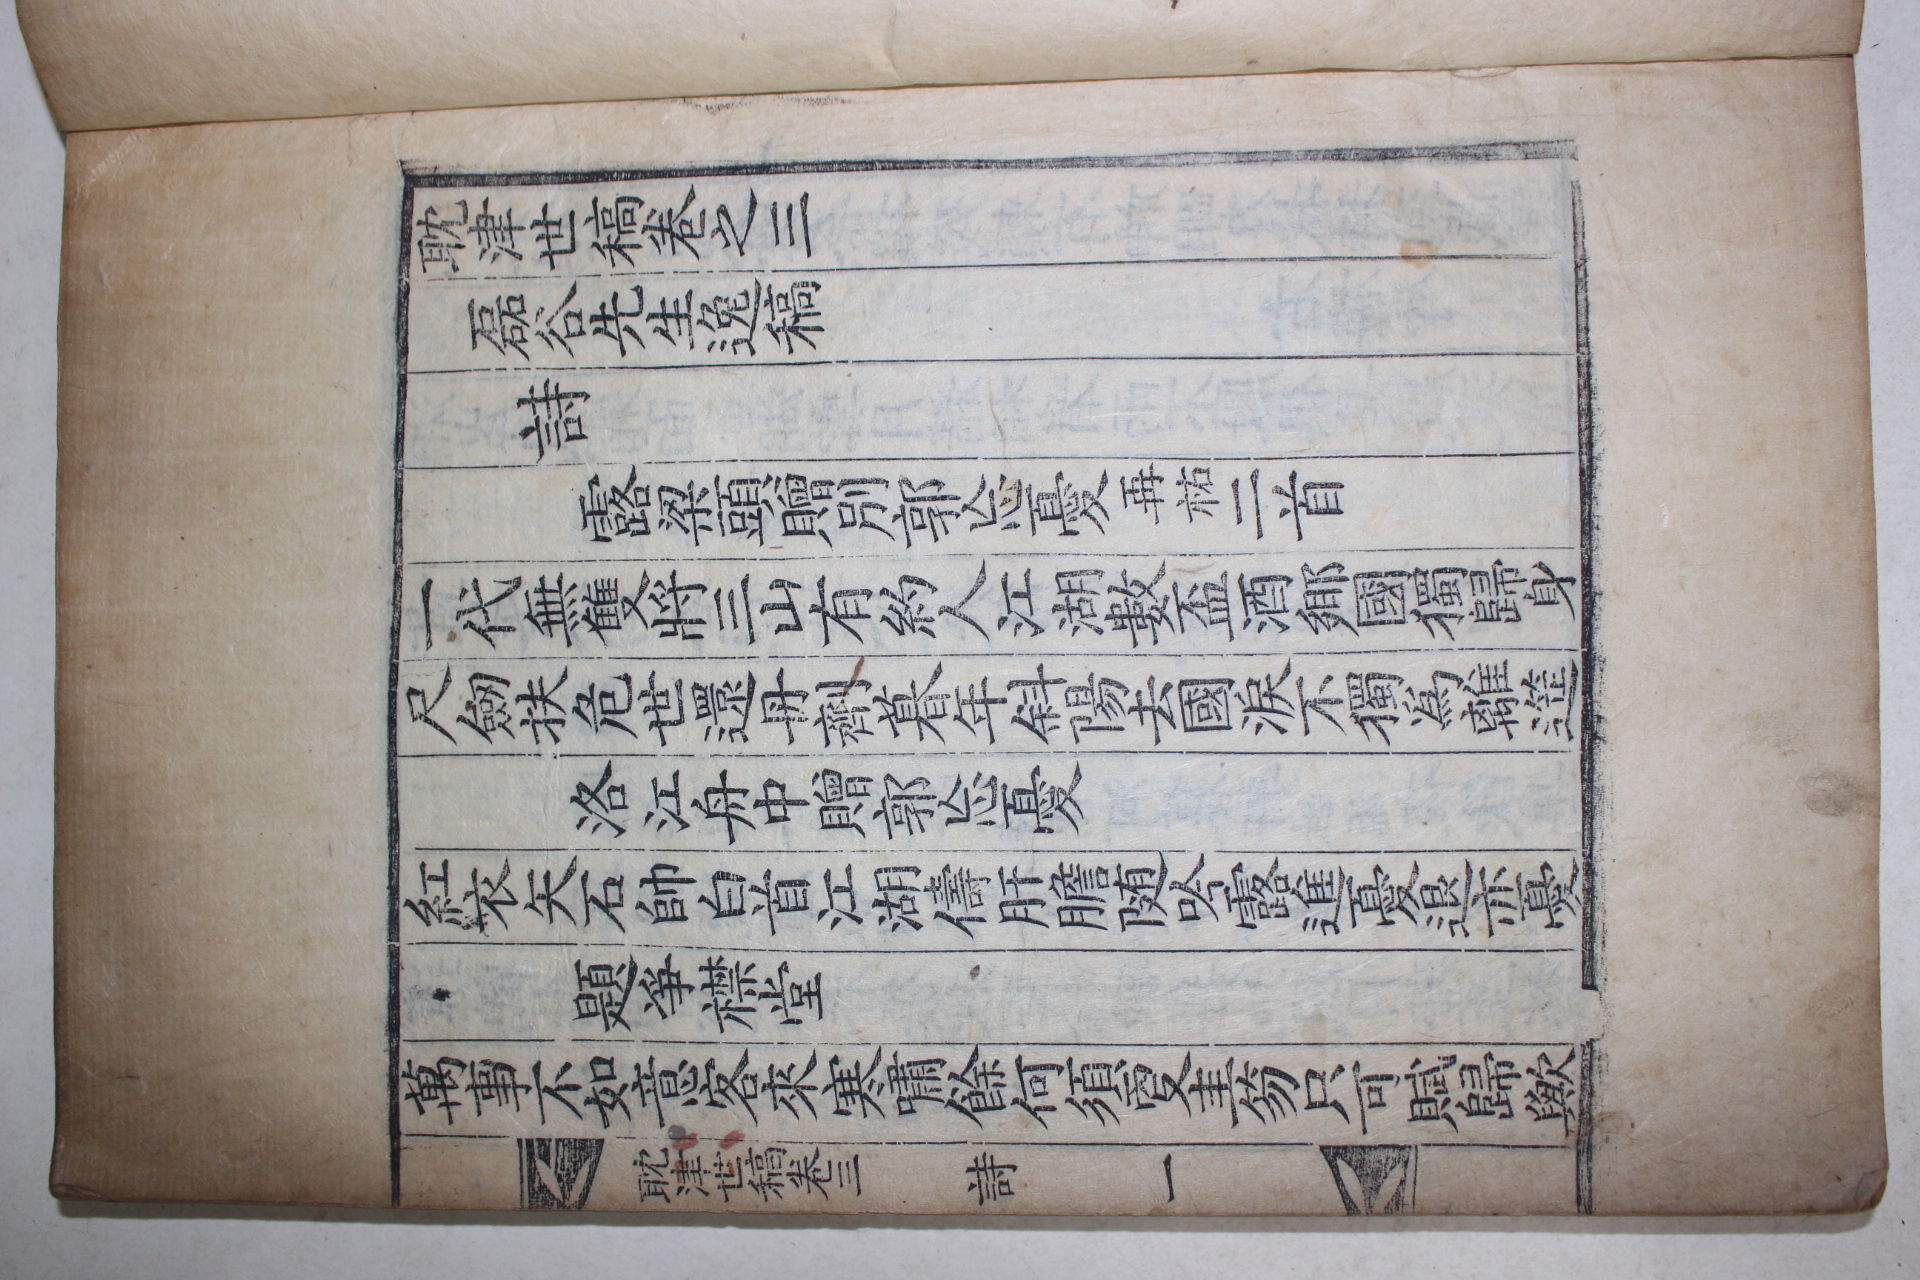 耽津世稿卷之三
磊谷先生逸稿
詩
露梁頭贈別郭忘憂再祐二首
一代無雙將三山有約人江湖數盃酒鄕國獨歸身
尺劒扶危世還丹劑暮年斜陽去國淚不獨爲離筵
洛江舟中贈郭忘憂
紅衣矢石帥白首江湖儔肝膽随吟露進憂退亦憂
題爭襟堂
萬事不如意客來寒嘯餘何須憂圭笏只可賦歸歟
耽津世稿卷三 詩 一